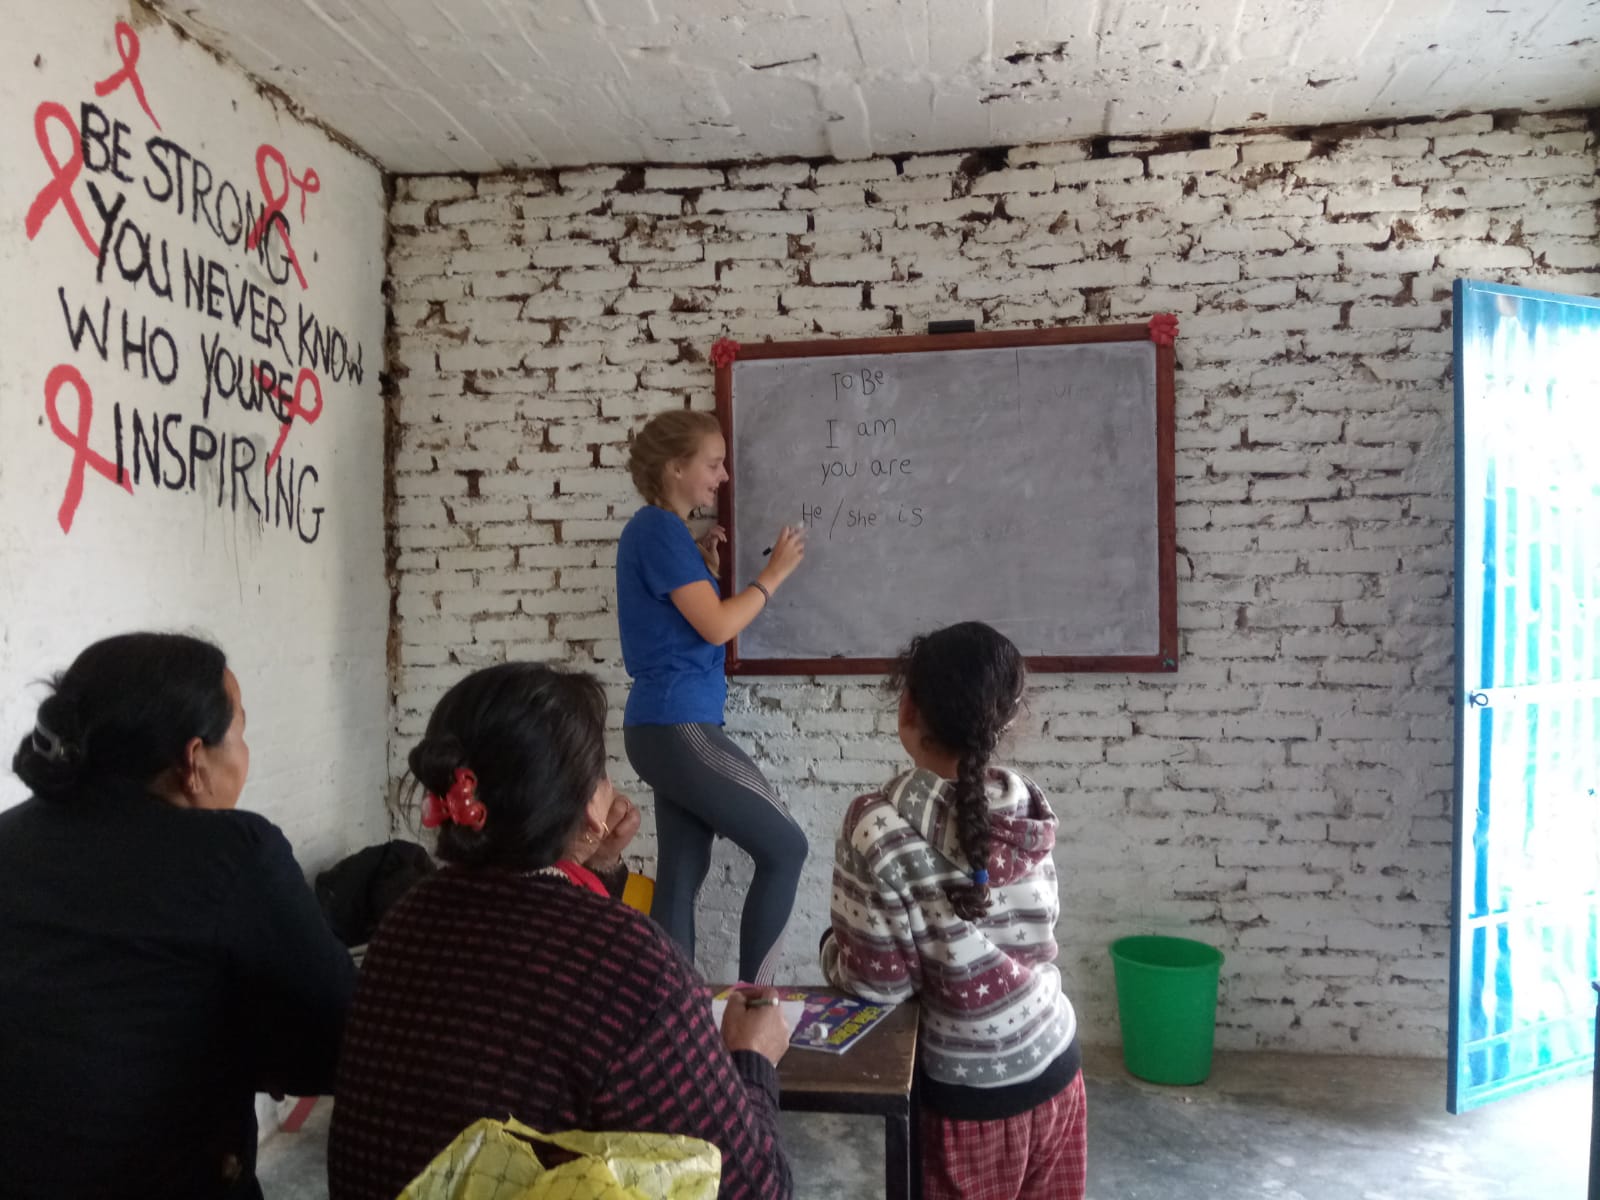 BE STRONG
YOU NEVER KNOW
WHO YOU'RE
INSPIRING
To Be
I am
you are
He / she is